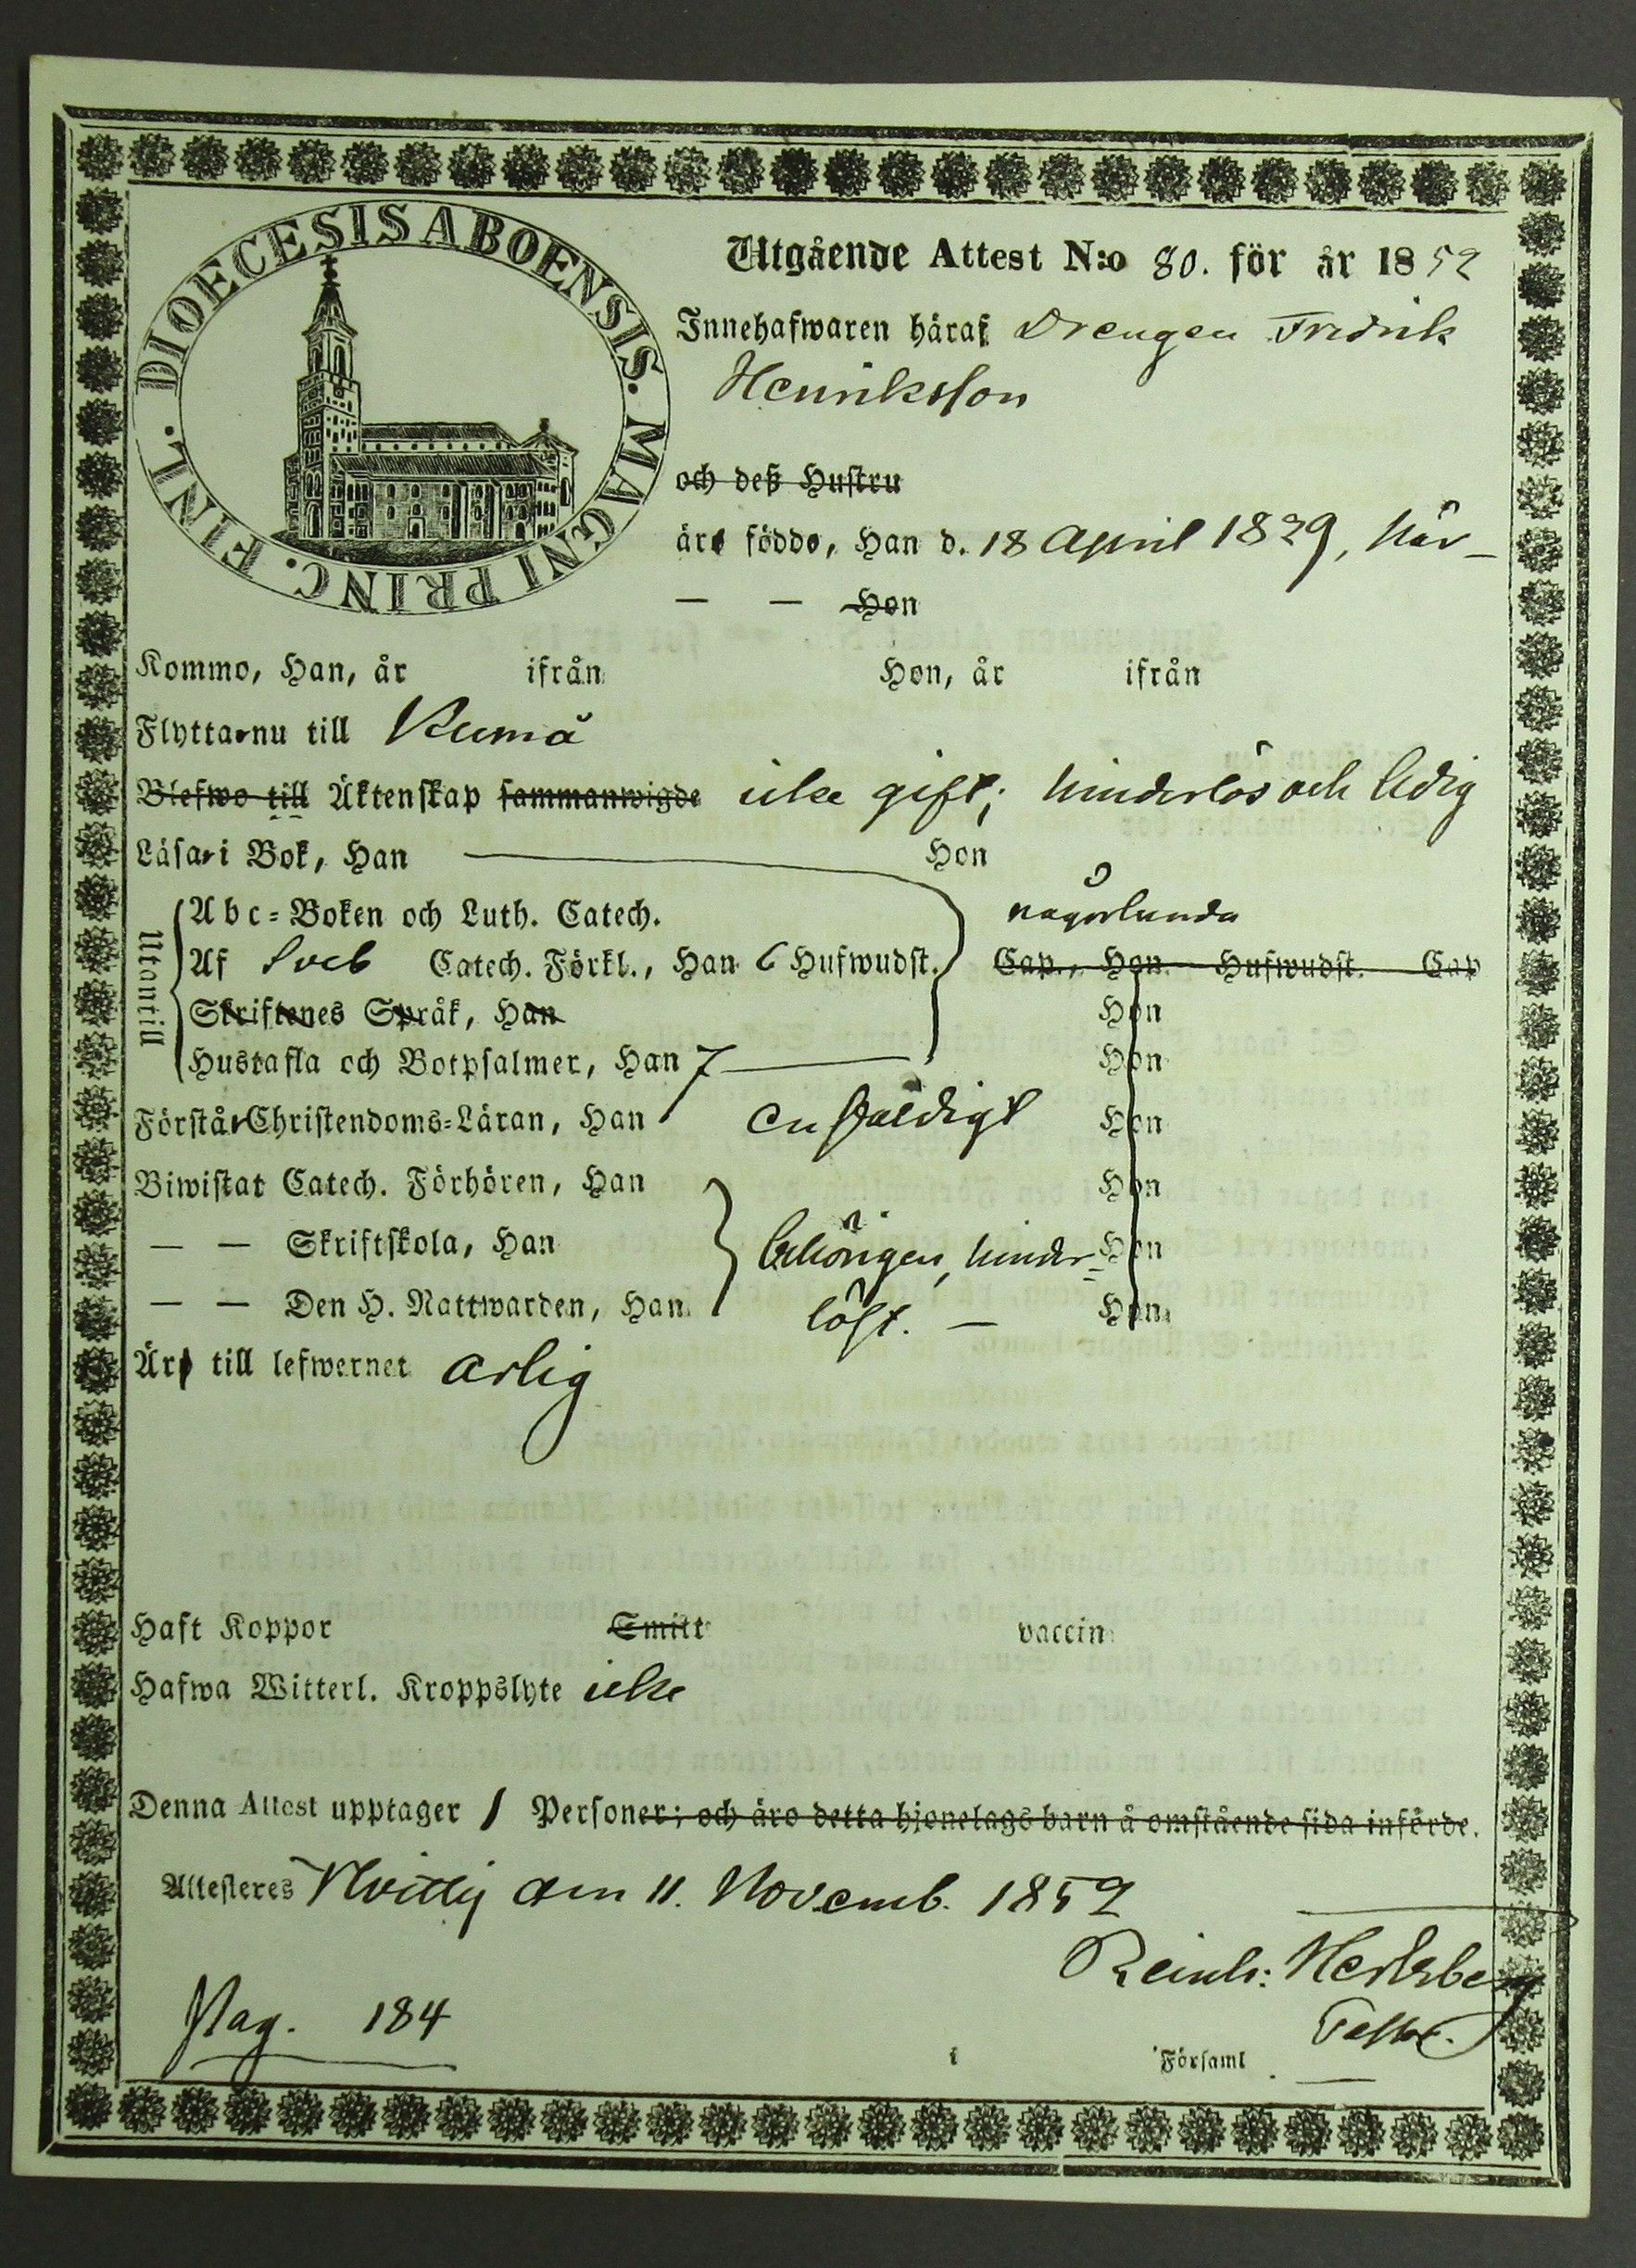 DIOECESIS ABOENSIS. MAGNI PRINC. FINL.
Utgående Attest N:o 80. för år 1852
Innehafwaren häraf Drengen Fredrik
Henriksson
och deß Hustru
äro föddo, Han d. 18 April 1829, här
— — Hon
Kommo, Han, år ifrån Hon, år ifrån
Flytta nu till Kumå
Blefwo till Äktenskap sammanwigde icke gift; hinderlös och ledig
Läsa i Bok, Han Hon
Utantill
Abc-Boken och Luth. Catech. någorlunda
Af Sveb Catech. Förkl., Han 6 Hufwudst. Cap., Hon Hufwudst. Cap
Skriftenes Språk, Han Hon
Hustafla och Botpsalmer, Han 7 Hon
Förstår Christendoms-Läran, Han enfaldigt Hon
Biwistat Catech. Förhören, Han Hon
— — Skriftskola, Han behörigen, hinder= Hon
— — Den H. Nattwarden, Han löst. — Hon
Äro till lefwernet ärlig
Haft Koppor Smitt vaccin
Hafwa Witterl. Kroppslyte icke
Denna Attest upptager 1 Personer; och äro detta hjonelags barn å omstående sida införde.
Attesteres Hvittis den 11. Novemb. 1852
Reinh: Hertzberg
Pag. 184
i Församl